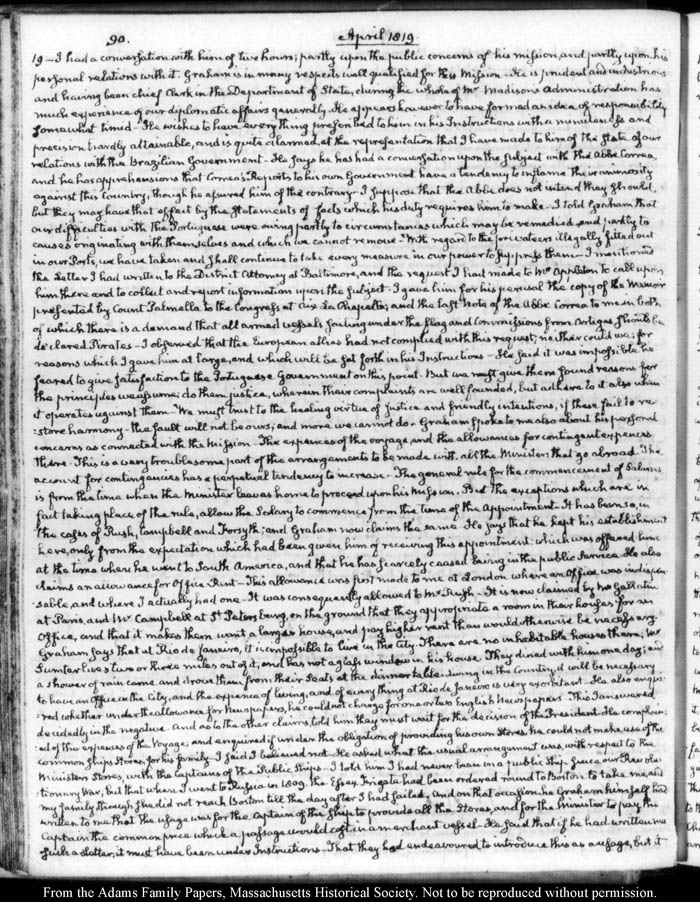 90. April 1819.
19 — I had a conversation with him of two hours; partly upon the public concerns of his mission, and partly upon his
personal relations with it. Graham is in many respects well qualified for this Mission — He is prudent and industrious
and having been chief Clerk in the Department of State, during the whole of Mr Madison's Administration has
much experience of our diplomatic affairs generally. He appears however to have formed an idea of responsibility
somewhat timid — He wishes to have every thing presented to him in his Instructions with a minuteness and
precision hardly attainable, and is quite alarmed, at the representation that I have made to him of the State of our
relations with the Brazilian Government — He says he has had a conversation upon the subject with the Abbé Correa,
and he has apprehensions that Correa's Reports to his own Government have a tendency to inflame the animosity
against this Country, though he assured him of the contrary — I suppose that the Abbé does not intend they should,
but they may have that effect by the Statements of facts which his duty requires him to make. I told Graham that
our difficulties with the Portuguese were owing partly to circumstances which may be remedied, and partly to
causes originating with themselves and which we cannot remove — With regard to the privateers illegally fitted out
in our Ports, we have taken and shall continue to take every measure in our power to suppress them — I mentioned
the Letter I had written to the District Attorney at Baltimore, and the request I had made to Mr Appleton to call upon
him there and to collect and report information upon the subject. I gave him for his perusal the copy of the Memoir
presented by Count Palmella to the Congress at Aix La Chapelle; and the last Note of the Abbé Correa to me in both
of which there is a demand that all armed vessels sailing under the flag and Commissions from Artigas should be
declared Pirates — I observed that the European allies had not complied with this request; neither could we; for
reasons which I gave him at large, and which will be set forth in his Instructions — He said it was impossible he
feared to give satisfaction to the Portuguese Government on this point. But we must give them sound reasons for
the principles we assume; do them justice, wherein their complaints are well founded, but adhere to it also when
it operates against them — We must trust to the healing virtue of Justice and friendly intentions, if these fail to re-
-store harmony — the fault will not be ours; and more we cannot do — Graham spoke to me also about his personal
concerns as connected with the Mission — The expences of the voyage, and the allowances for contingent expences
there. This is a very troublesome part of the arrangements to be made with all the Ministers that go abroad. The
account for contingencies has a perpetual tendency to increase — The general rule for the commencement of Salaries
is from the time when the Minister leaves home to proceed upon his Mission. But the exceptions which are in
fact taking place of the rule, allow the Salary to commence from the time of the Appointment — It has been so, in
the cases of Rush, Campbell and Forsyth; and Graham now claims the same. He says that he kept his establishment
here, only from the expectation which had been given him of receiving this appointment; which was offered him
at the time when he went to South America, and that he has scarcely ceased being in the public service. He also
claims an allowance for Office Rent — This allowance was first made to me at London where an Office was indispen-
sable, and where I actually had one — It was consequently allowed to Mr Rush — It is now claimed by Mr Gallatin
at Paris, and Mr Campbell at St. Petersburg, on the ground that they appropriate a room in their houses for an
Office, and that it makes them want a larger house, and pay higher rent than would otherwise be necessary.
Graham says that at Rio de Janeiro, it is impossible to live in the City. There are no inhabitable houses there; Mr
Sumter lives two or three miles out of it, and has not a glass window in his house. They dined with him one day; and
a shower of rain came and drove them from their seats at the dinner table — living in the Country, it will be necessary
to have an Office in the City, and the expence of living, and of every thing at Rio de Janeiro is very exorbitant — He also enqui-
-red whether under the allowance for Newspapers, he could not charge for one or two English Newspapers. This I answered
decidedly in the negative. And as to the other claims, told him they must wait for the decision of the President — He complain-
-ed of the expences of the Voyage; and enquired if under the obligation of providing his own Stores, he could not make use of the
common Ships Stores, for his family — I said I believed not — He asked what the usual arrangement was, with respect to the
Ministers Stores, with the Captains of the Public Ships — I told him I had never been in a public Ship, since our Revolu-
tionary War; but that when I went to Russia in 1809, the Essex frigate had been ordered round to Boston to take me, and
my family though she did not reach Boston till the day after I had sailed; and on that occasion, he Graham himself had
written to me that the usage was for the Captain of the Ship to provide all the Stores, and for the Minister to pay the
Captain the common price which a passage would cost in a merchant vessel — He said that if he had written me
such a letter, it must have been under Instructions — That they had endeavoured to introduce this as a usage, but it
From the Adams Family Papers, Massachusetts Historical Society. Not to be reproduced without permission.